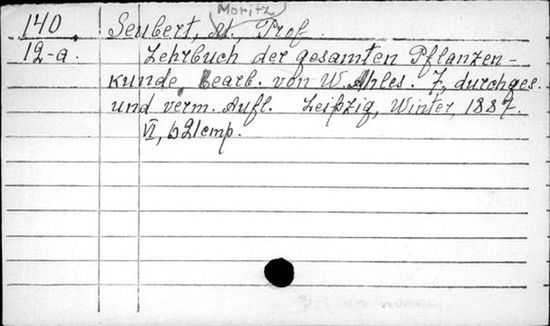 Moritz
140. Seubert, M., Prof.
12-a. Lehrbuch der gesamten Pflanzen-
kunde, Bearb. von W. Ahles. 7, durchges.
und verm. Aufl. Leipzig, Winter, 1887.
VI, 621 стр.